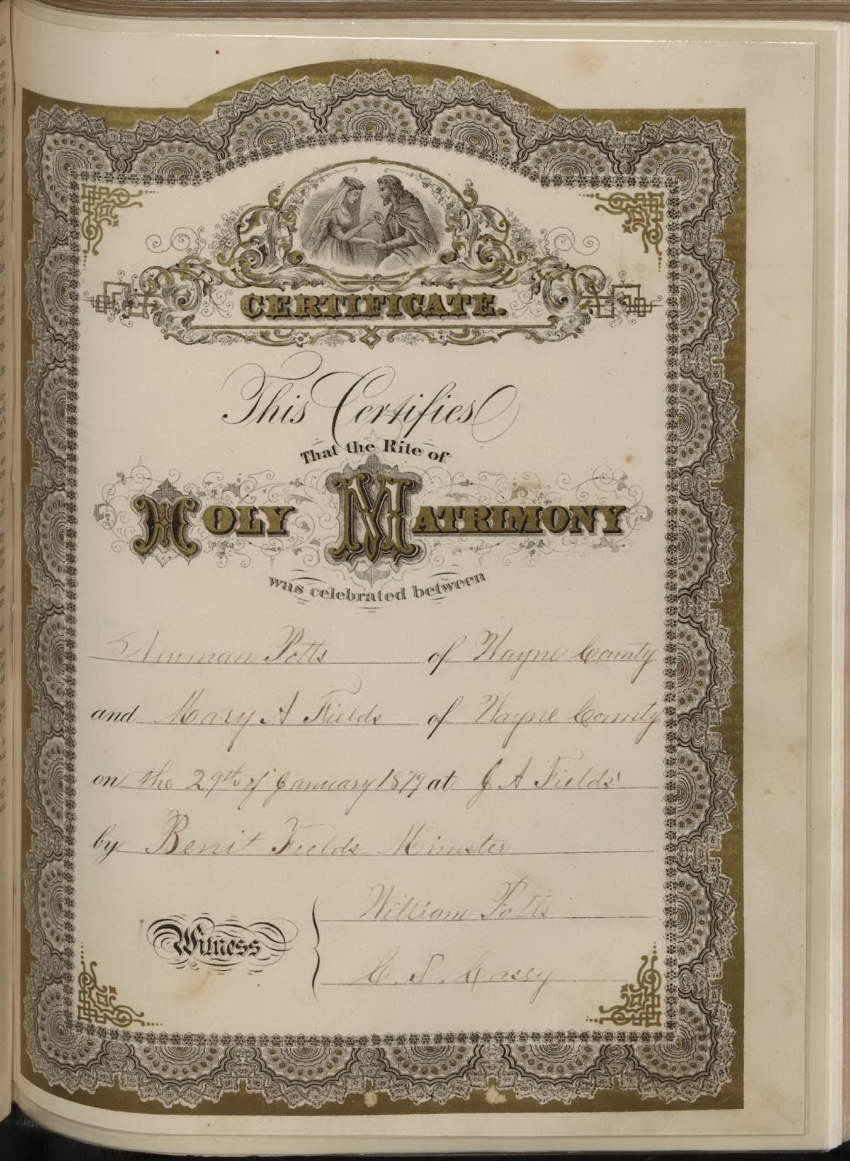 CERTIFICATE.
This Certifies
That the Rite of
HOLY MATRIMONY
was celebrated between
Newman Potts of Wayne County
and Mary A Fields of Wayne County
on the 29th of January 1879 at J A Fields'
by Benit Fields Minister
William Potts
Witness
C. S. Casey